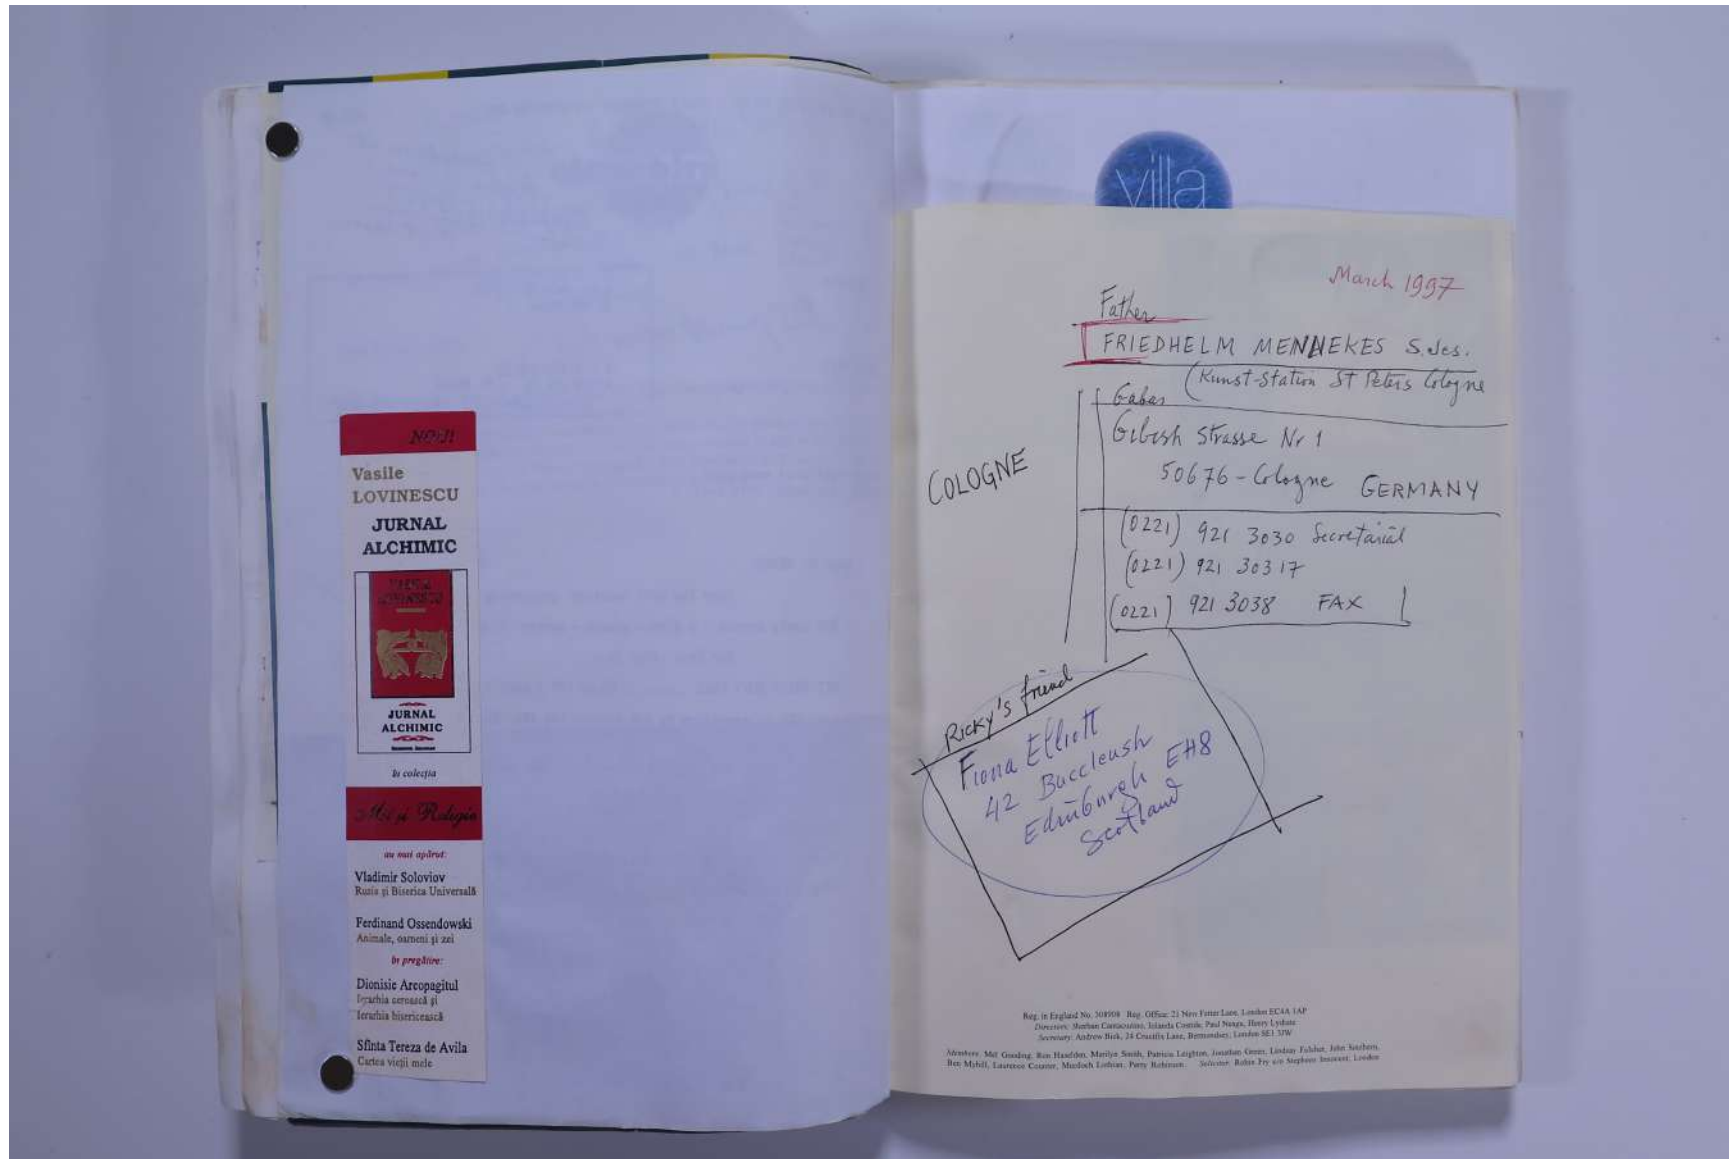 NOU!
Vasile
LOVINESCU
JURNAL
ALCHIMIC
VASILE
LOVINESCU
JURNAL
ALCHIMIC
în colecția
Mit și Religie
au mai apărut:
Vladimir Soloviov
Rusia și Biserica Universală
Ferdinand Ossendowski
Animale, oameni și zei
în pregătire:
Dionisie Areopagitul
Ierarhia cerească și
Ierarhia bisericească
Sfînta Tereza de Avila
Cartea vieții mele
villa
March 1997
Father
FRIEDHELM MENNEKES S.Jes.
(Kunst-Station St Peters Cologne
Gabas
Gibesh Strasse Nr 1
50676 - Cologne GERMANY
COLOGNE
(0221) 921 3030 Secretariat
(0221) 921 30317
(0221) 921 3038 FAX
Ricky's friend
Fiona Elliott
42 Buccleush
Edinburgh EH8
Scotland
Reg. in England No. 508908 Reg. Office: 21 New Fetter Lane, London EC4A 1AP
Directors: Sherban Cantacuzino, Iolanda Costide, Paul Neagu, Henry Lydiate
Secretary: Andrew Bick, 24 Crucifix Lane, Bermondsey, London SE1 3JW
Members: Mel Gooding, Ron Haselden, Marilyn Smith, Patricia Leighton, Jonathan Green, Lindsay Fulcher, John
Ben Mybill, Laurence Counter, Murdoch Lothian, Perry Robinson. Solicitor: Robin Fry c/o Stephens Innocent, London